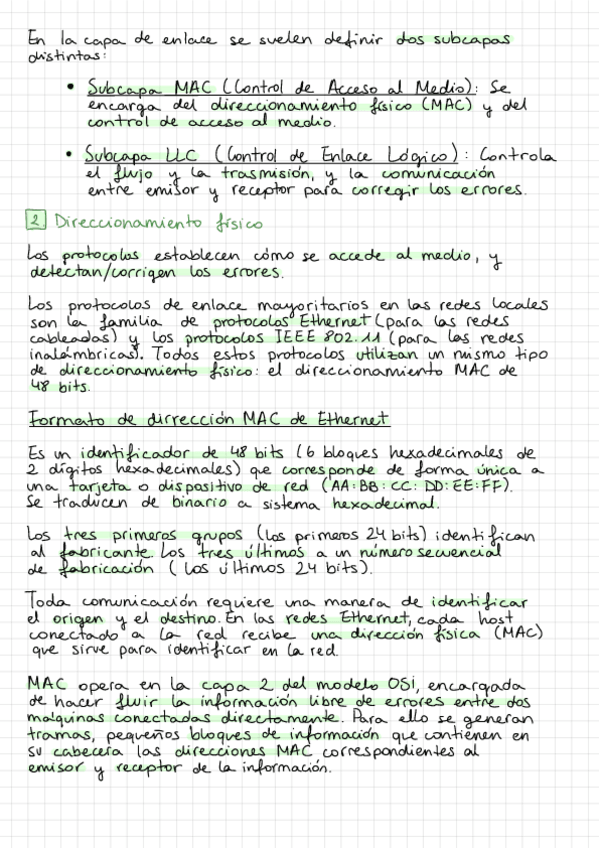 En la capa de enlace se suelen definir dos subcapas
distintas:
• Subcapa MAC (Control de Acceso al Medio): Se
encarga del direccionamiento físico (MAC) y del
control de acceso al medio.
• Subcapa LLC (Control de Enlace Lógico): Controla
el flujo y la trasmisión, y la comunicación
entre emisor y receptor para corregir los errores.
2 Direccionamiento físico
Los protocolos establecen cómo se accede al medio, y
detectan/corrigen los errores.
Los protocolos de enlace mayoritarios en las redes locales
son la familia de protocolos Ethernet (para las redes
cableadas) y los protocolos IEEE 802.11 (para las redes
inalámbricas). Todos estos protocolos utilizan un mismo tipo
de direccionamiento físico: el direccionamiento MAC de
48 bits.
Formato de dirrección MAC de Ethernet
Es un identificador de 48 bits (6 bloques hexadecimales de
2 dígitos hexadecimales) que corresponde de forma única a
una tarjeta o dispositivo de red (AA:BB:CC:DD:EE:FF).
Se traducen de binario a sistema hexadecimal.
Los tres primeros grupos (los primeros 24 bits) identifican
al fabricante. Los tres últimos a un número secuencial
de fabricación (los últimos 24 bits).
Toda comunicación requiere una manera de identificar
el origen y el destino. En las redes Ethernet, cada host
conectado a la red recibe una dirección física (MAC)
que sirve para identificar en la red.
MAC opera en la capa 2 del modelo OSI, encargada
de hacer fluir la información libre de errores entre dos
máquinas conectadas directamente. Para ello se generan
tramas, pequeños bloques de información que contienen en
su cabecera las direcciones MAC correspondientes al
emisor y receptor de la información.